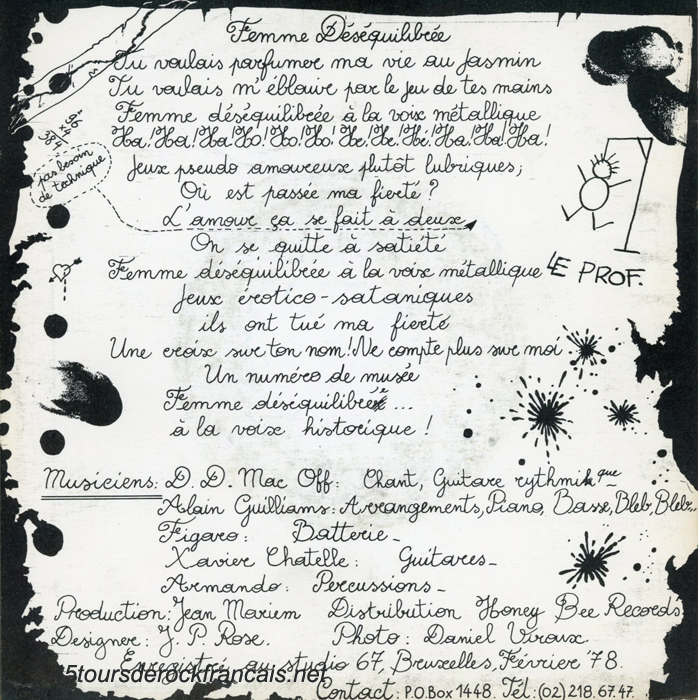 Femme Déséquilibrée
Tu voulais parfumer ma vie au Jasmin
Tu voulais m'éblouir par le jeu de tes mains
Femme déséquilibrée à la voix métallique
Ha! Ha! Ha! Ho! Ho! Ho! He! He! He! Ha! Ha! Ha!
pas besoin
de technique
Jeux pseudo amoureux plutôt lubriques;
Où est passée ma fierté?
L'amour ça se fait à deux
On se quitte à satiété
Femme déséquilibrée à la voix métallique
LE PROF.
Jeux érotico-sataniques
ils ont tué ma fierté
Une croix sur ton nom! Ne compte plus sur moi
Un numéro de musée
Femme déséquilibrée...
à la voix historique!
Musiciens: D.D. Mac Off: Chant, Guitare rythmique_
Alain Guilliams: Arrangements, Piano, Basse, Bleb, Bleb...
Figaro: Batterie_
Xavier Chatelle: Guitares_
Armando: Percussions_
Production: Jean Mariem Distribution Honey Bee Records
Designer: J.P. Rose. Photo: Daniel Viroux
Enregistré au studio 67, Bruxelles, Février '78.
45toursderockfrancais.net
Contact: P.O.Box 1448. Tél: (02) 218.67.47.